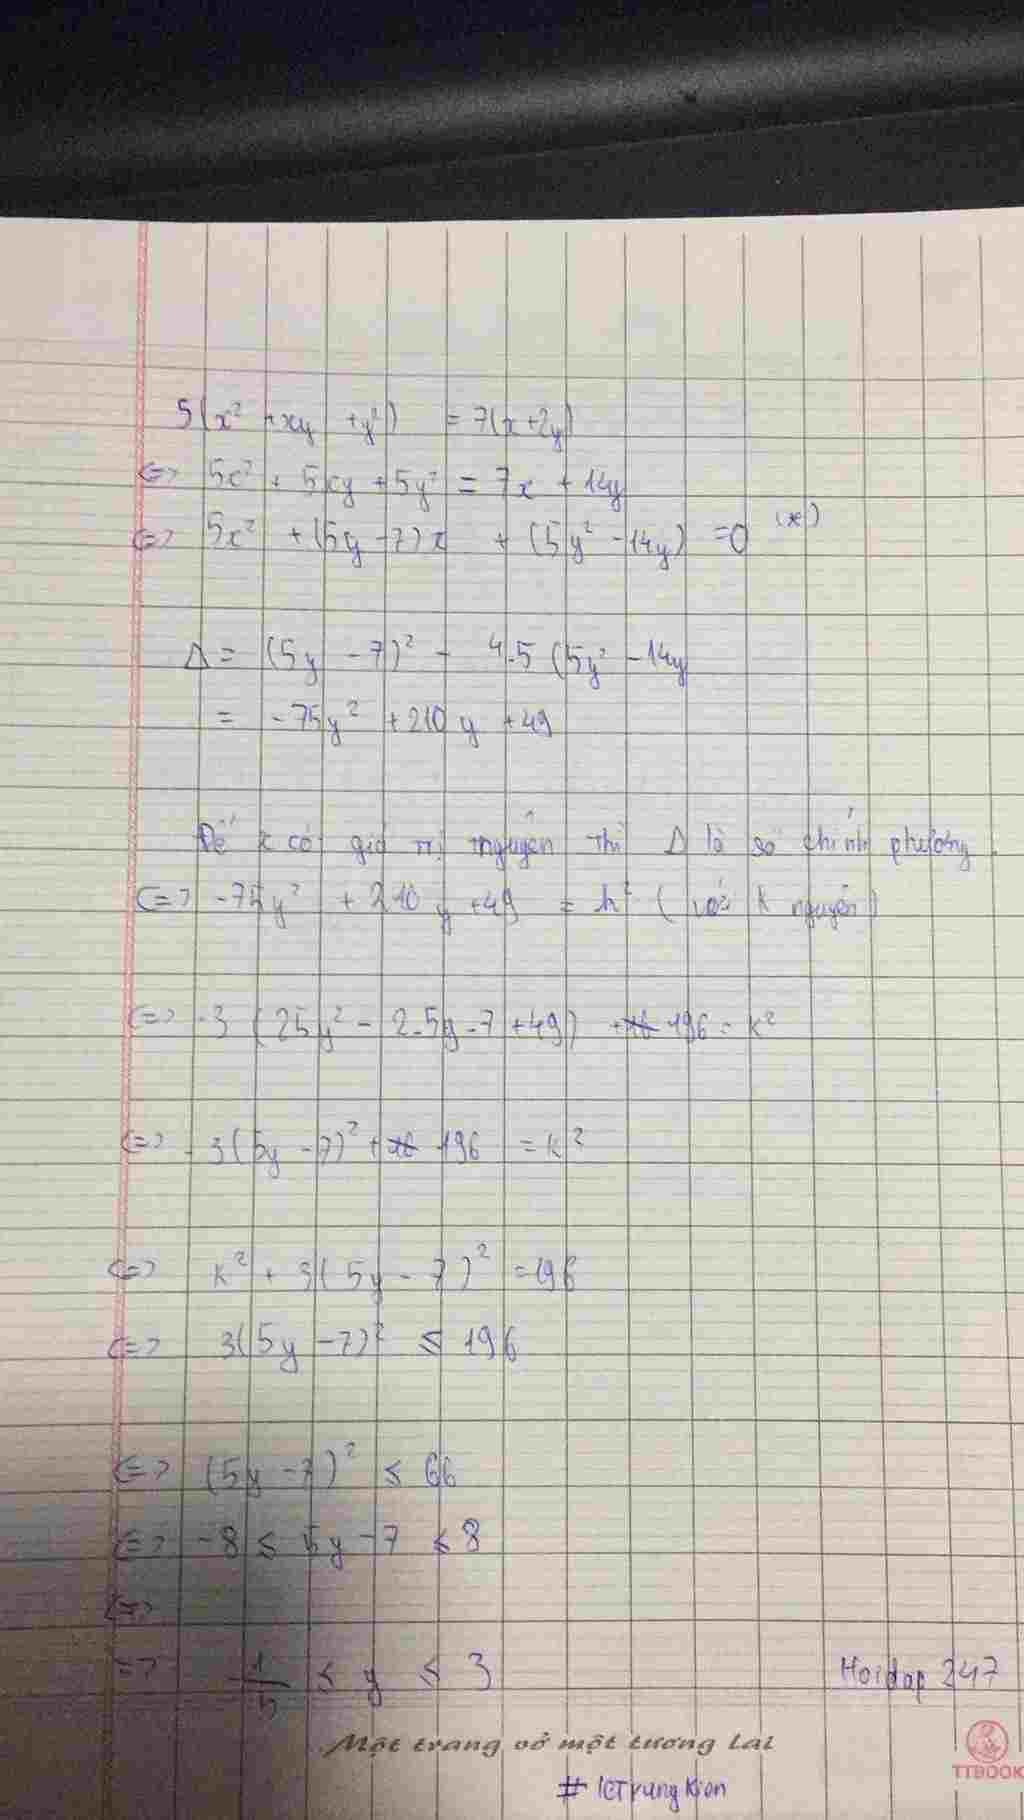 5(x² + xy + y²) = 7(x+2y)
<=> 5x² + 5xy + 5y² = 7x + 14y
<=> 5x² + (5y - 7)x + (5y² - 14y) = 0 (*)
Δ = (5y - 7)² - 4.5 (5y² - 14y
= -75y² + 210y + 49
Để x có giá trị nguyên thì Δ là số chính phương
<=> -75y² + 210y + 49 = k² (với k nguyên)
<=> -3 (25y² - 2.5y.7 + 49) + 196 = k²
<=> -3(5y - 7)² + 196 = k²
<=> k² + 3(5y - 7)² = 196
<=> 3(5y - 7)² ≤ 196
<=> (5y - 7)² ≤ 66
<=> -8 ≤ 5y - 7 ≤ 8
<=>
=> -1/5 ≤ y ≤ 3
Hoidap 247
Một trang vở một tương lai
TTBOOK